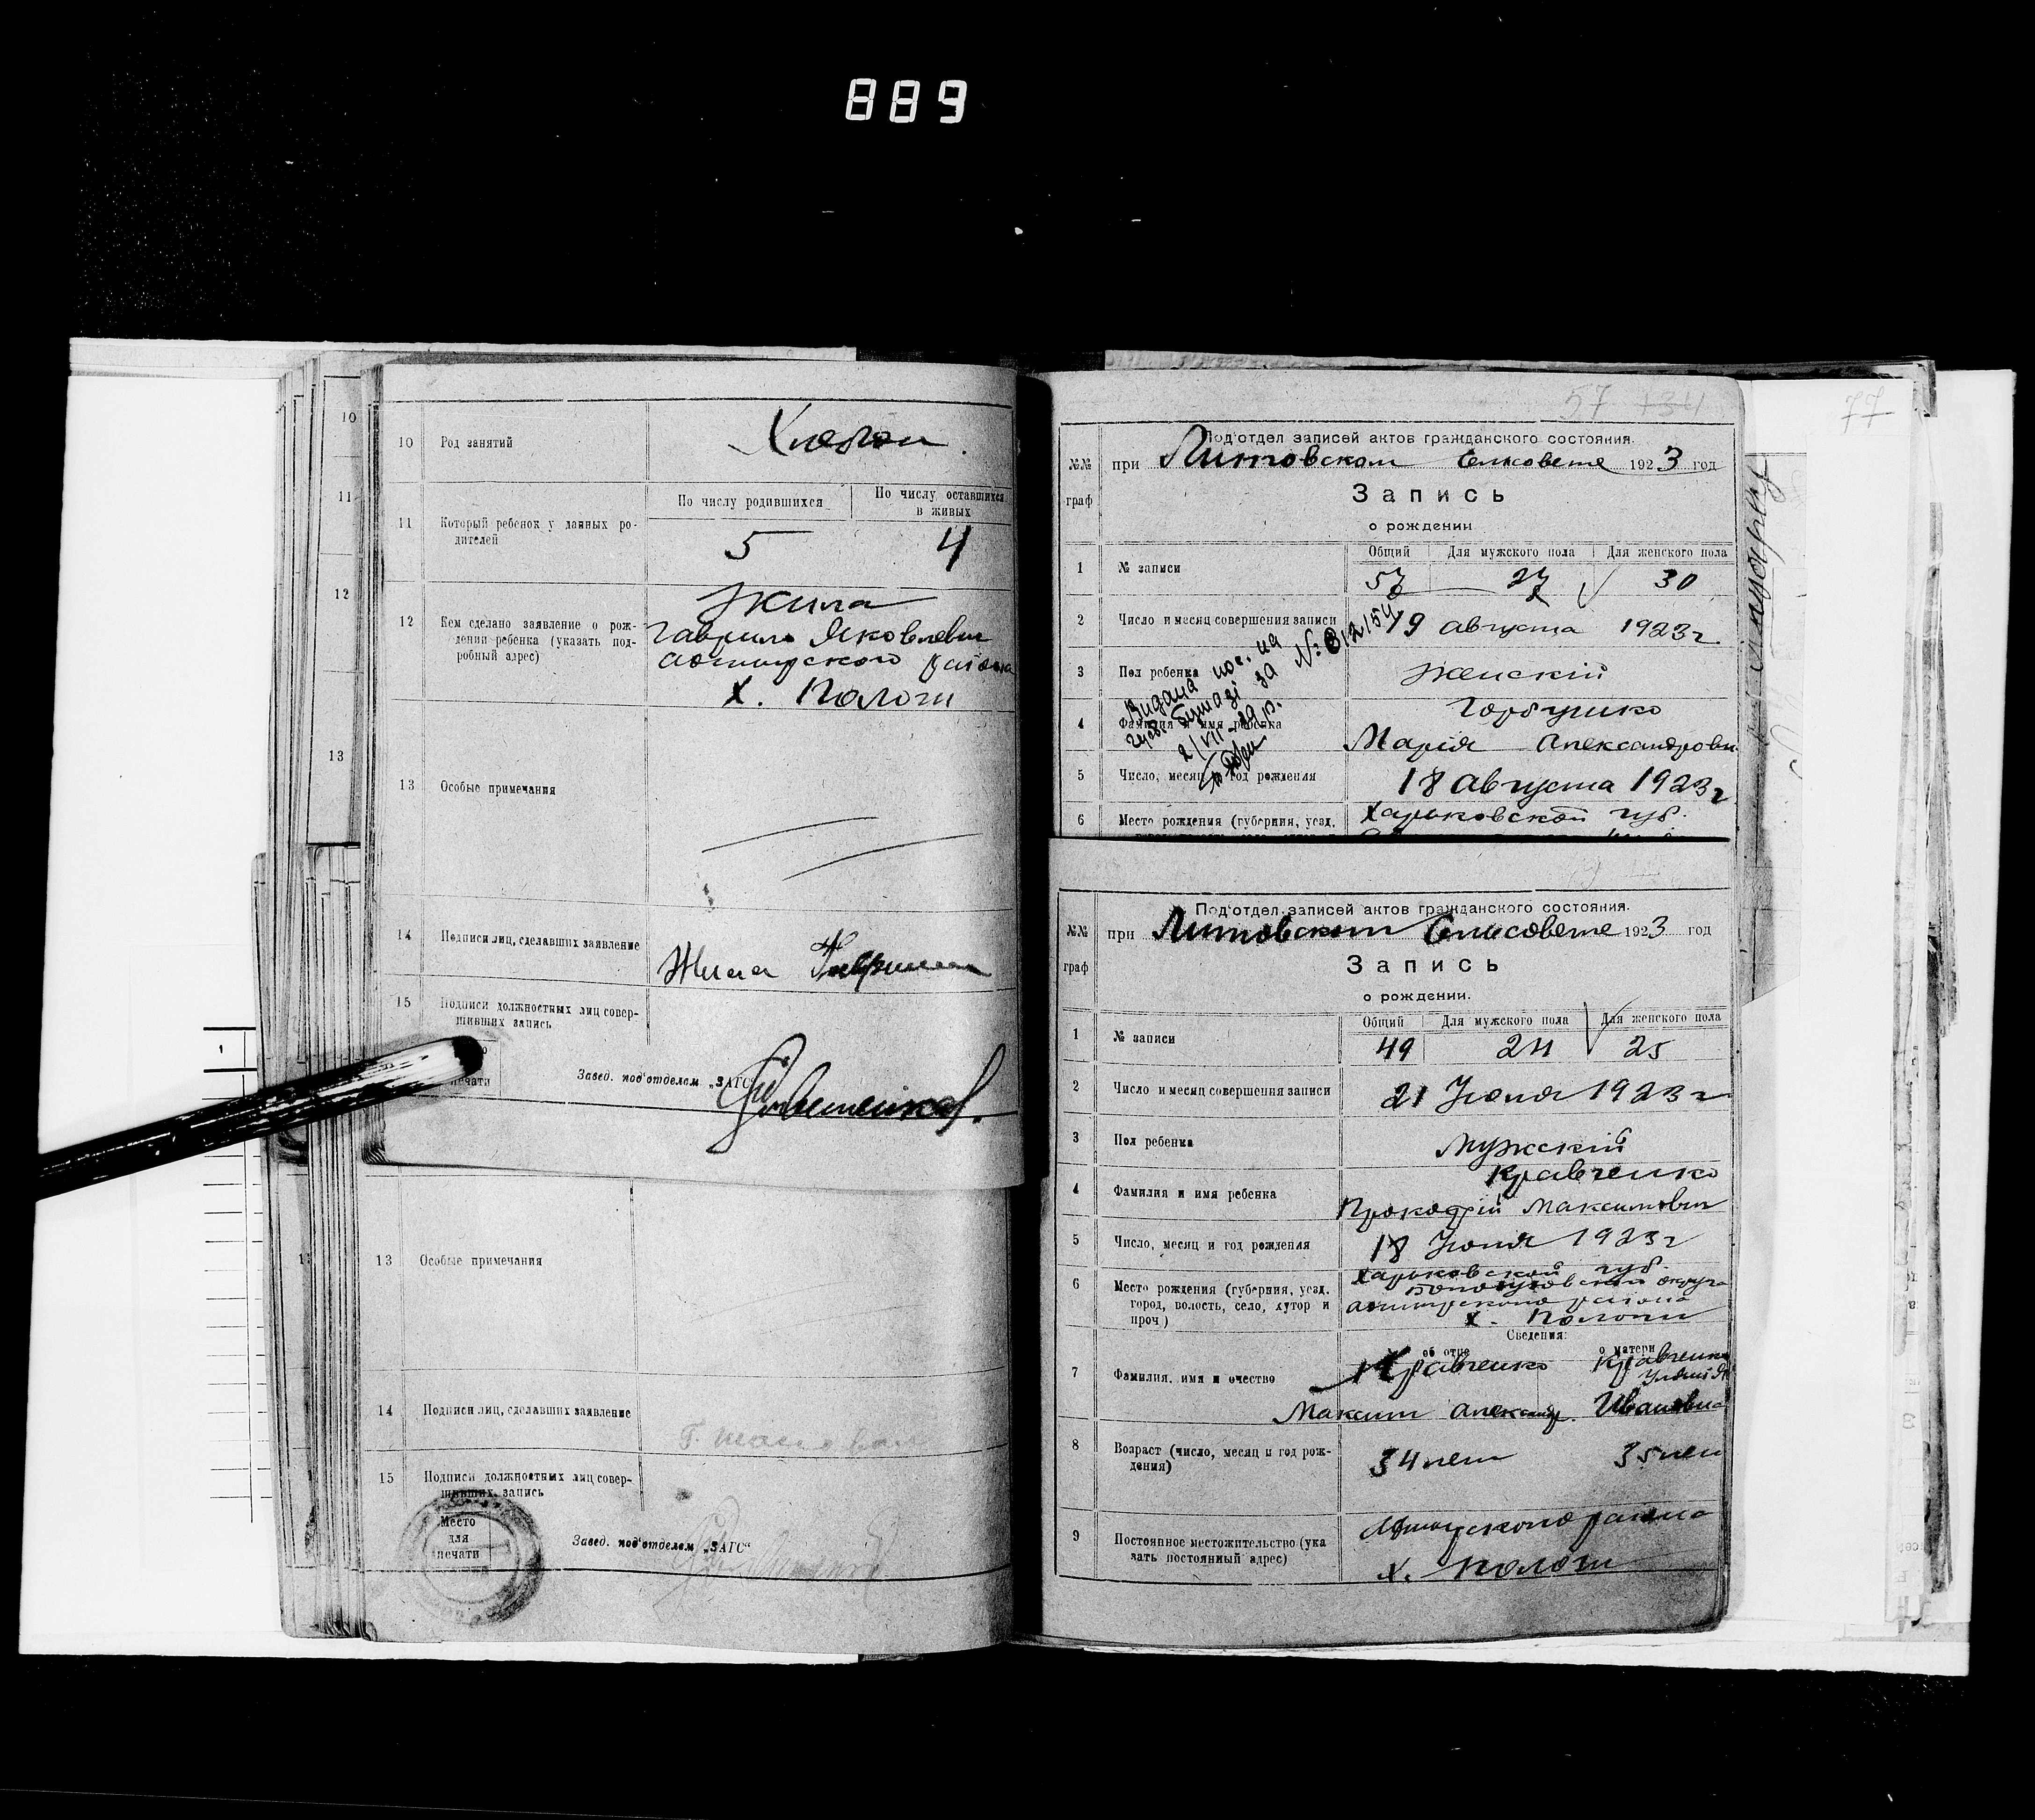 889
10 Род занятий Хлебоп
11 Который ребенок у данных ро-
дителей
По числу родившихся По числу оставшихся
в живых
5 4
12 Кем сделано заявление о рож-
дении ребенка (указать под-
робный адрес)
Жила
Гаврило Яковлевич
района
х. Пологи
13 Особые примечания
14 Подписи лиц, сделавших заявление
Жила Гаврило
15 Подписи должностных лиц совер-
шивших запись
печати
Завед. под'отделом „ЗАГС"
13 Особые примечания
14 Подписи лиц, сделавших заявление
15 Подписи должностных лиц совер-
шивших запись
Место
для
печати
Завед. под'отделом „ЗАГС"
10
11
12
13
1
57 134
77
Под'отдел записей актов гражданского состояния.
№№
граф
при Литовском 1923 год
Запись
о рождении
Общий Для мужского пола Для женского пола
1 № записи 57 27 30
2 Число и месяц совершения записи 19 августа 1923 г
3 Пол ребенка женский
4 Фамилия и имя ребенка Горбунко
Марія Александровн
5 Число, месяц и год рождения 18 августа 1923 г
6 Место рождения (губерния, уезд, Харьковской губ.
Видана пос. на
бумазі за №
2/VII-29 р.
Под'отдел записей актов гражданского состояния.
№№
граф
при Литовском 1923 год
Запись
о рождении.
Общий Для мужского пола Для женского пола
1 № записи 49 24 25
2 Число и месяц совершения записи 21 Июня 1923 г
3 Пол ребенка мужскій
4 Фамилия и имя ребенка Кравченко
Прокофий Максимович
5 Число, месяц и год рождения 18 Июня 1923 г
6 Место рождения (губерния, уезд,
город, волость, село, хутор и
проч)
Харьковской губ.
Богодуховской округа
района
х. Пологи
Сведения:
об отце о матери
7 Фамилия, имя и очество
Кравченко Кравченко
Максим Александ. Ивановна
8 Возраст (число, месяц и год рож-
дения)
34 лет 35 лет
9 Постоянное местожительство (ука
зать постоянный адрес)
района
х. Пологи